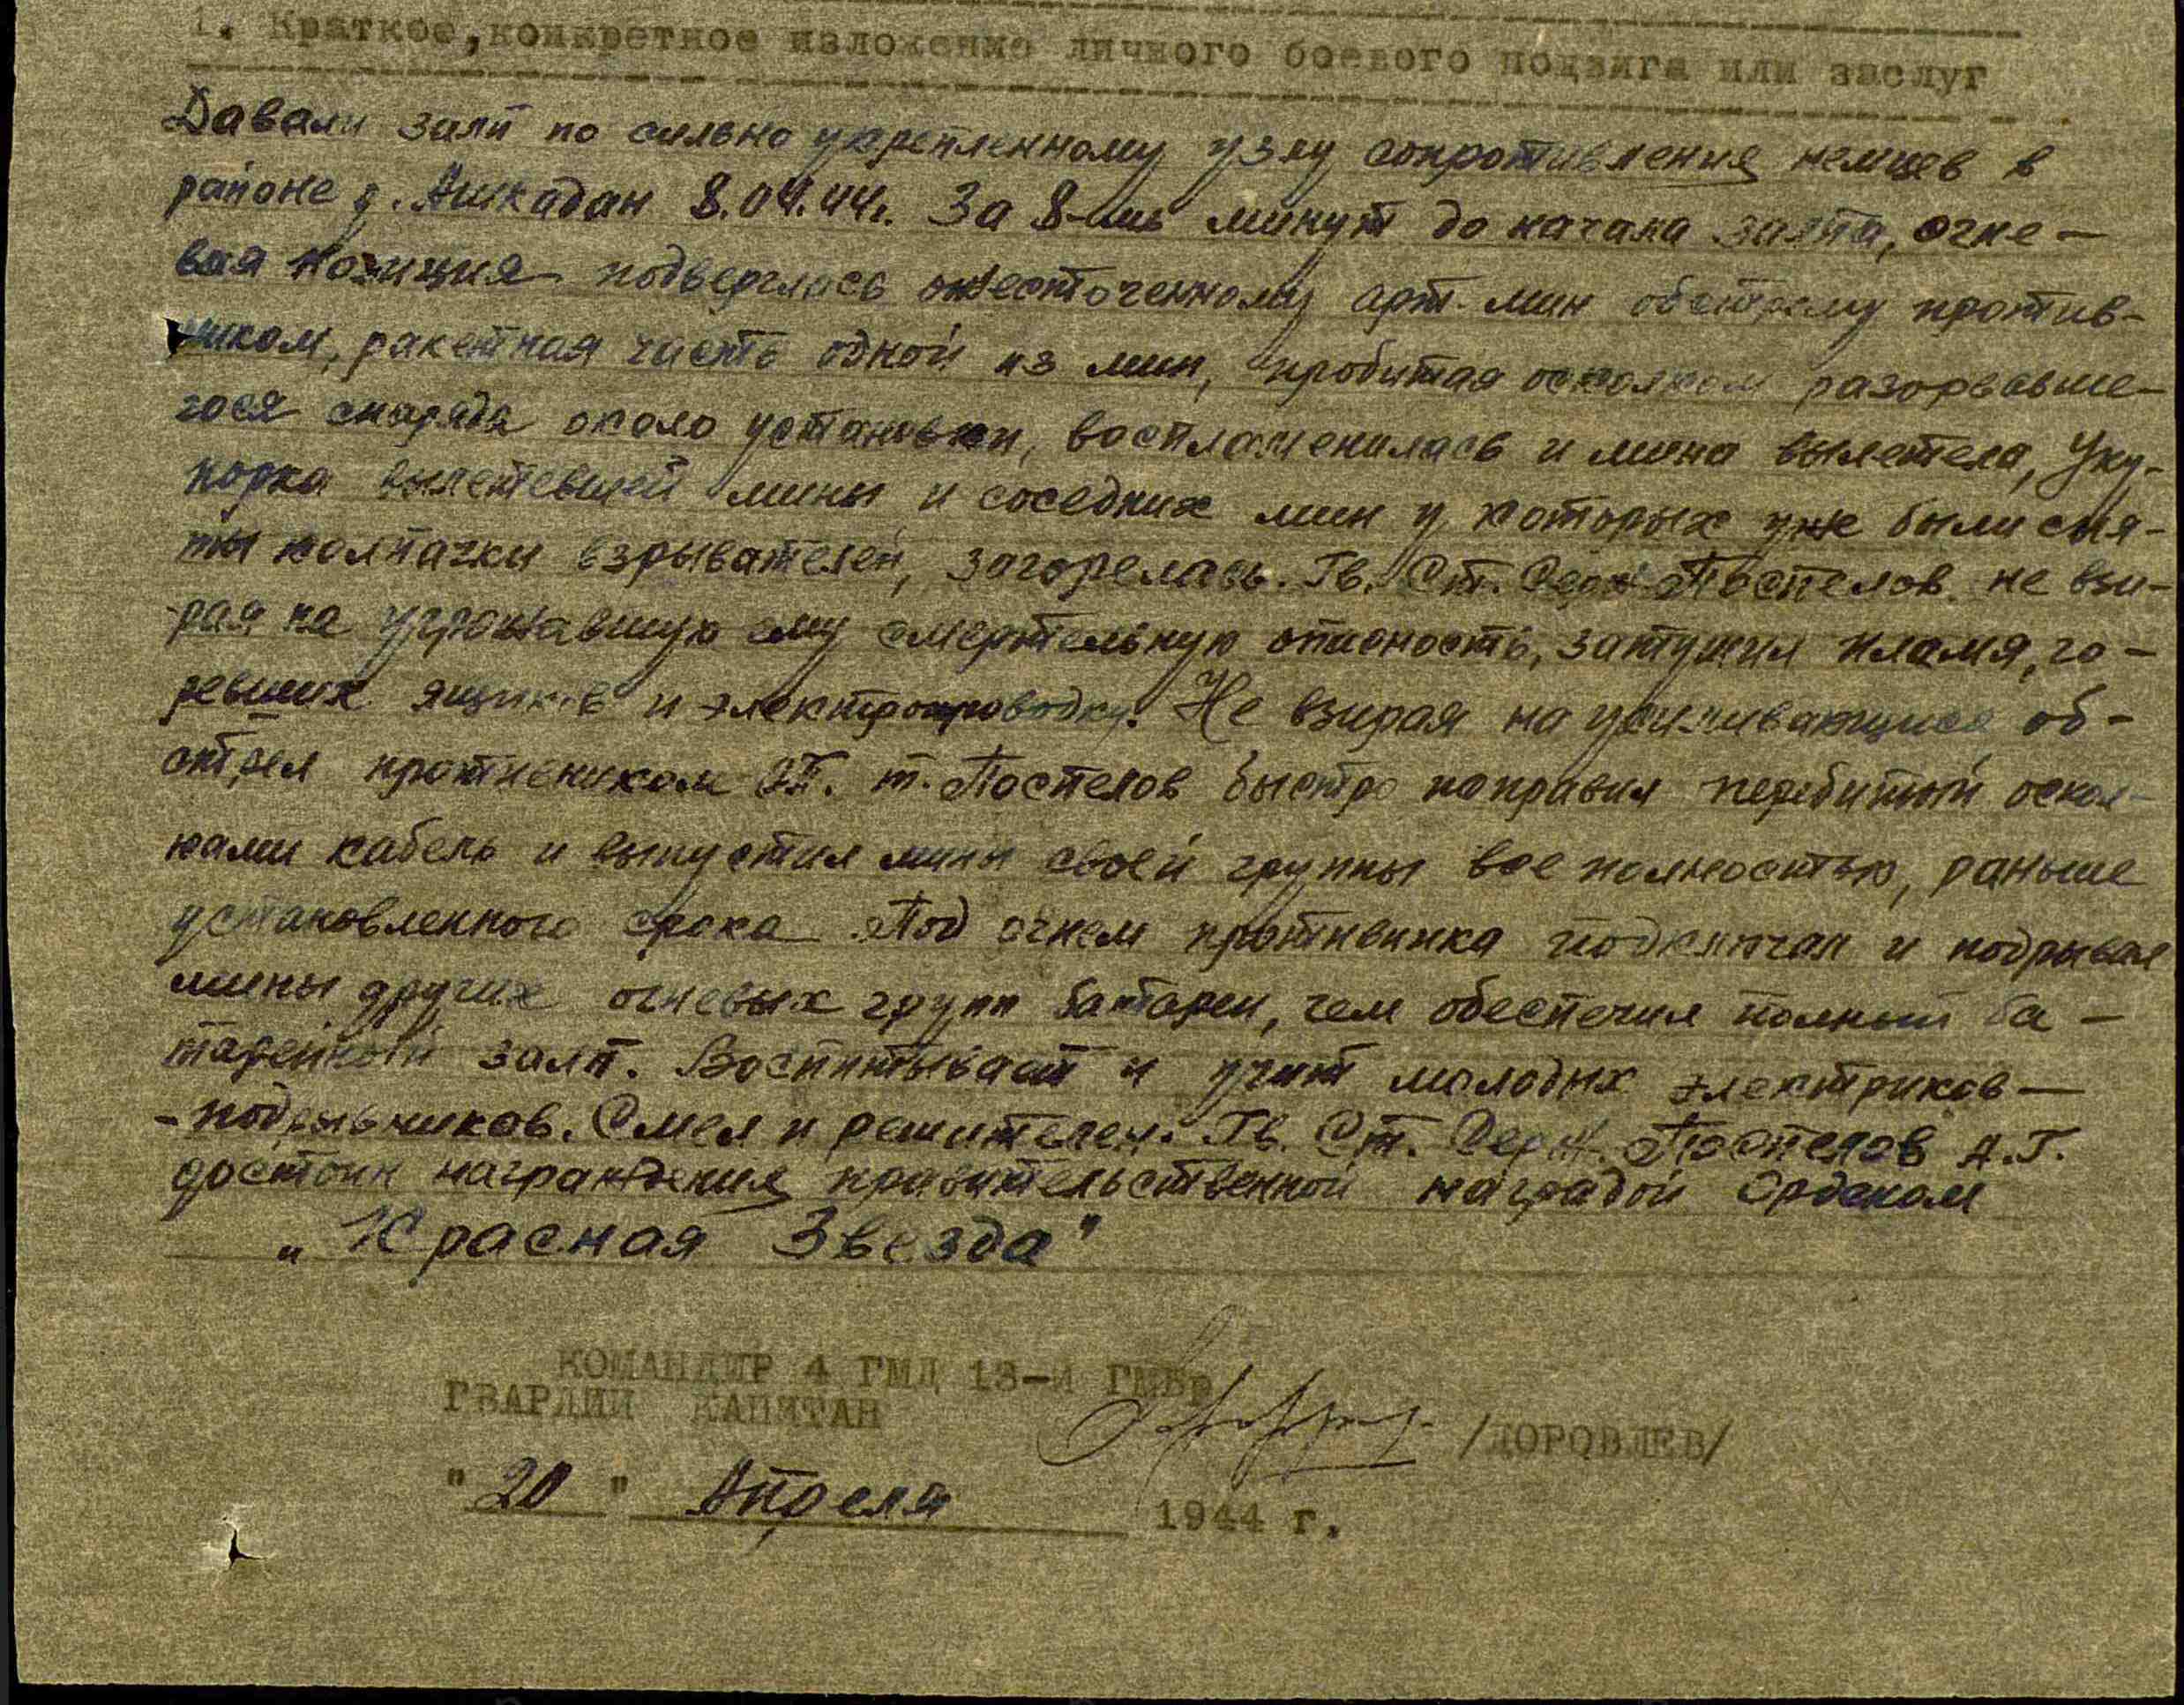 1. Краткое, конкретное изложение личного боевого подвига или заслуг
Давали залп по сильно укрепленному узлу сопротивления немцев в
районе д. Ашкадан 8.04.44г. За 8-мь минут до начала залпа, огне-
вая позиция подверглась ожесточенному арт. мин обстрелу против-
ником, ракетная часть одной из мин, пробитая осколком разорвавше-
гося снаряда около установки, воспламенилась и мина вылетела, Уку-
порка вылетевшей мины и соседних мин у которых уже были сня-
ты колпачки взрывателей, загорелась. Гв. Ст. Серж. Поспелов не взи-
рая на угрожавшую ему смертельную опасность, затушил пламя, го-
ревших ящиков и электропроводку. Не взирая на усиливающийся об-
стрел противником ОП. т. Поспелов быстро поправил перебитый оскол-
ками кабель и выпустил мины своей группы все полностью, раньше
установленного срока. Под огнем противника подключал и подрывал
мины других огневых групп батареи, чем обеспечил полный ба-
тарейный залп. Воспитывает и учит молодых электриков-
-подрывников. Смел и решителен. Гв. Ст. Серж. Поспелов А.Г.
достоин награждения правительственной наградой Орденом
„Красная Звезда"
КОМАНДИР 4 ГМД 13-й ГМБр
ГВАРДИИ КАПИТАН /ДОРОВЛЕВ/
"20" Апреля 1944 г.